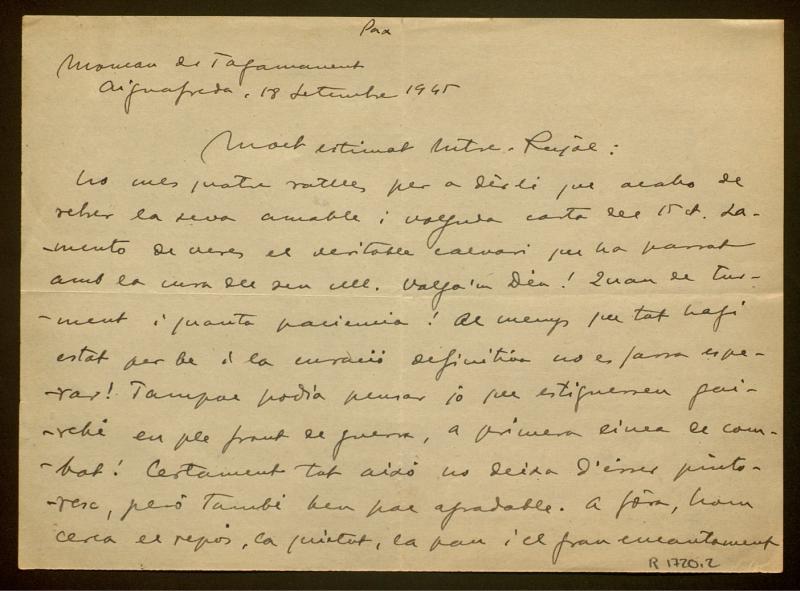 Pax
Montau de Tagamanent
Aiguafreda, 18 Setembre 1945
Molt estimat Mtre. Pujol:
No mes quatre ratlles per a dir-li que acabo de
rebre la seva amable i volguda carta del 15 ct. La-
-mento de veres el veritable calvari que ha passat
amb la cura del seu ull. Valga'm Déu! Quan de tur-
-ment i quanta paciencia! Al menys que tot hagi
estat per be i la curació definitiva no es fassa espe-
-rar! Tampoc podia pensar jo que estiguessen gai-
-rebé en ple front de guerra, a primera linea de com-
-bat! Certament tot aixó no deixa d'ésser pinto-
-resc, peró també ben poc agradable. A fòra, hom
cerca el repós, la quietut, la pau i el gran encantament
R 1720,2